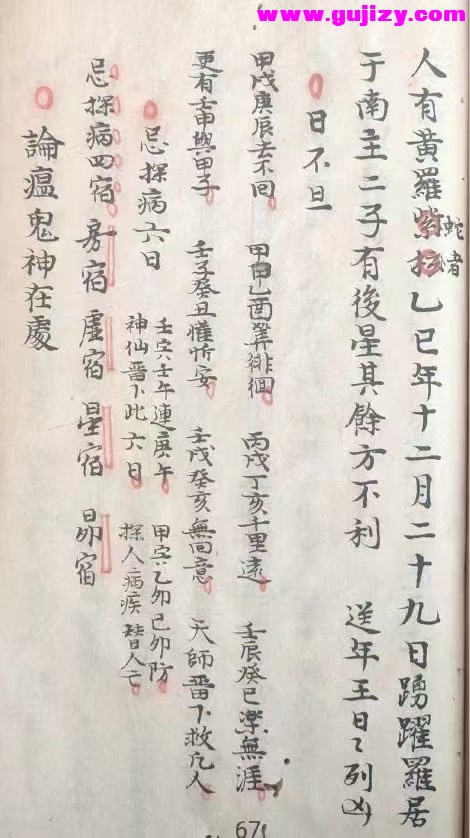 www.gujizy.com
人有黃羅紫 蛇者 乙巳年十二月二十九日踴躍羅居
于南主二子有後星其餘方不利 送年王日〻列凶
日不旦
甲戌庚辰去不回 甲申乙酉算徘徊 丙戌丁亥千里遠 壬辰癸巳樂無涯
更有壬申與甲子 壬子癸丑懽忻安 壬戌癸亥無回意 天師畱下救凡人
忌探病六日 壬寅壬午連庚午 甲寅乙卯己卯防
神仙畱下此六日 探人病疾替人亡
忌探病四宿 房宿 虛宿 星宿 昴宿
論瘟鬼神在處
67